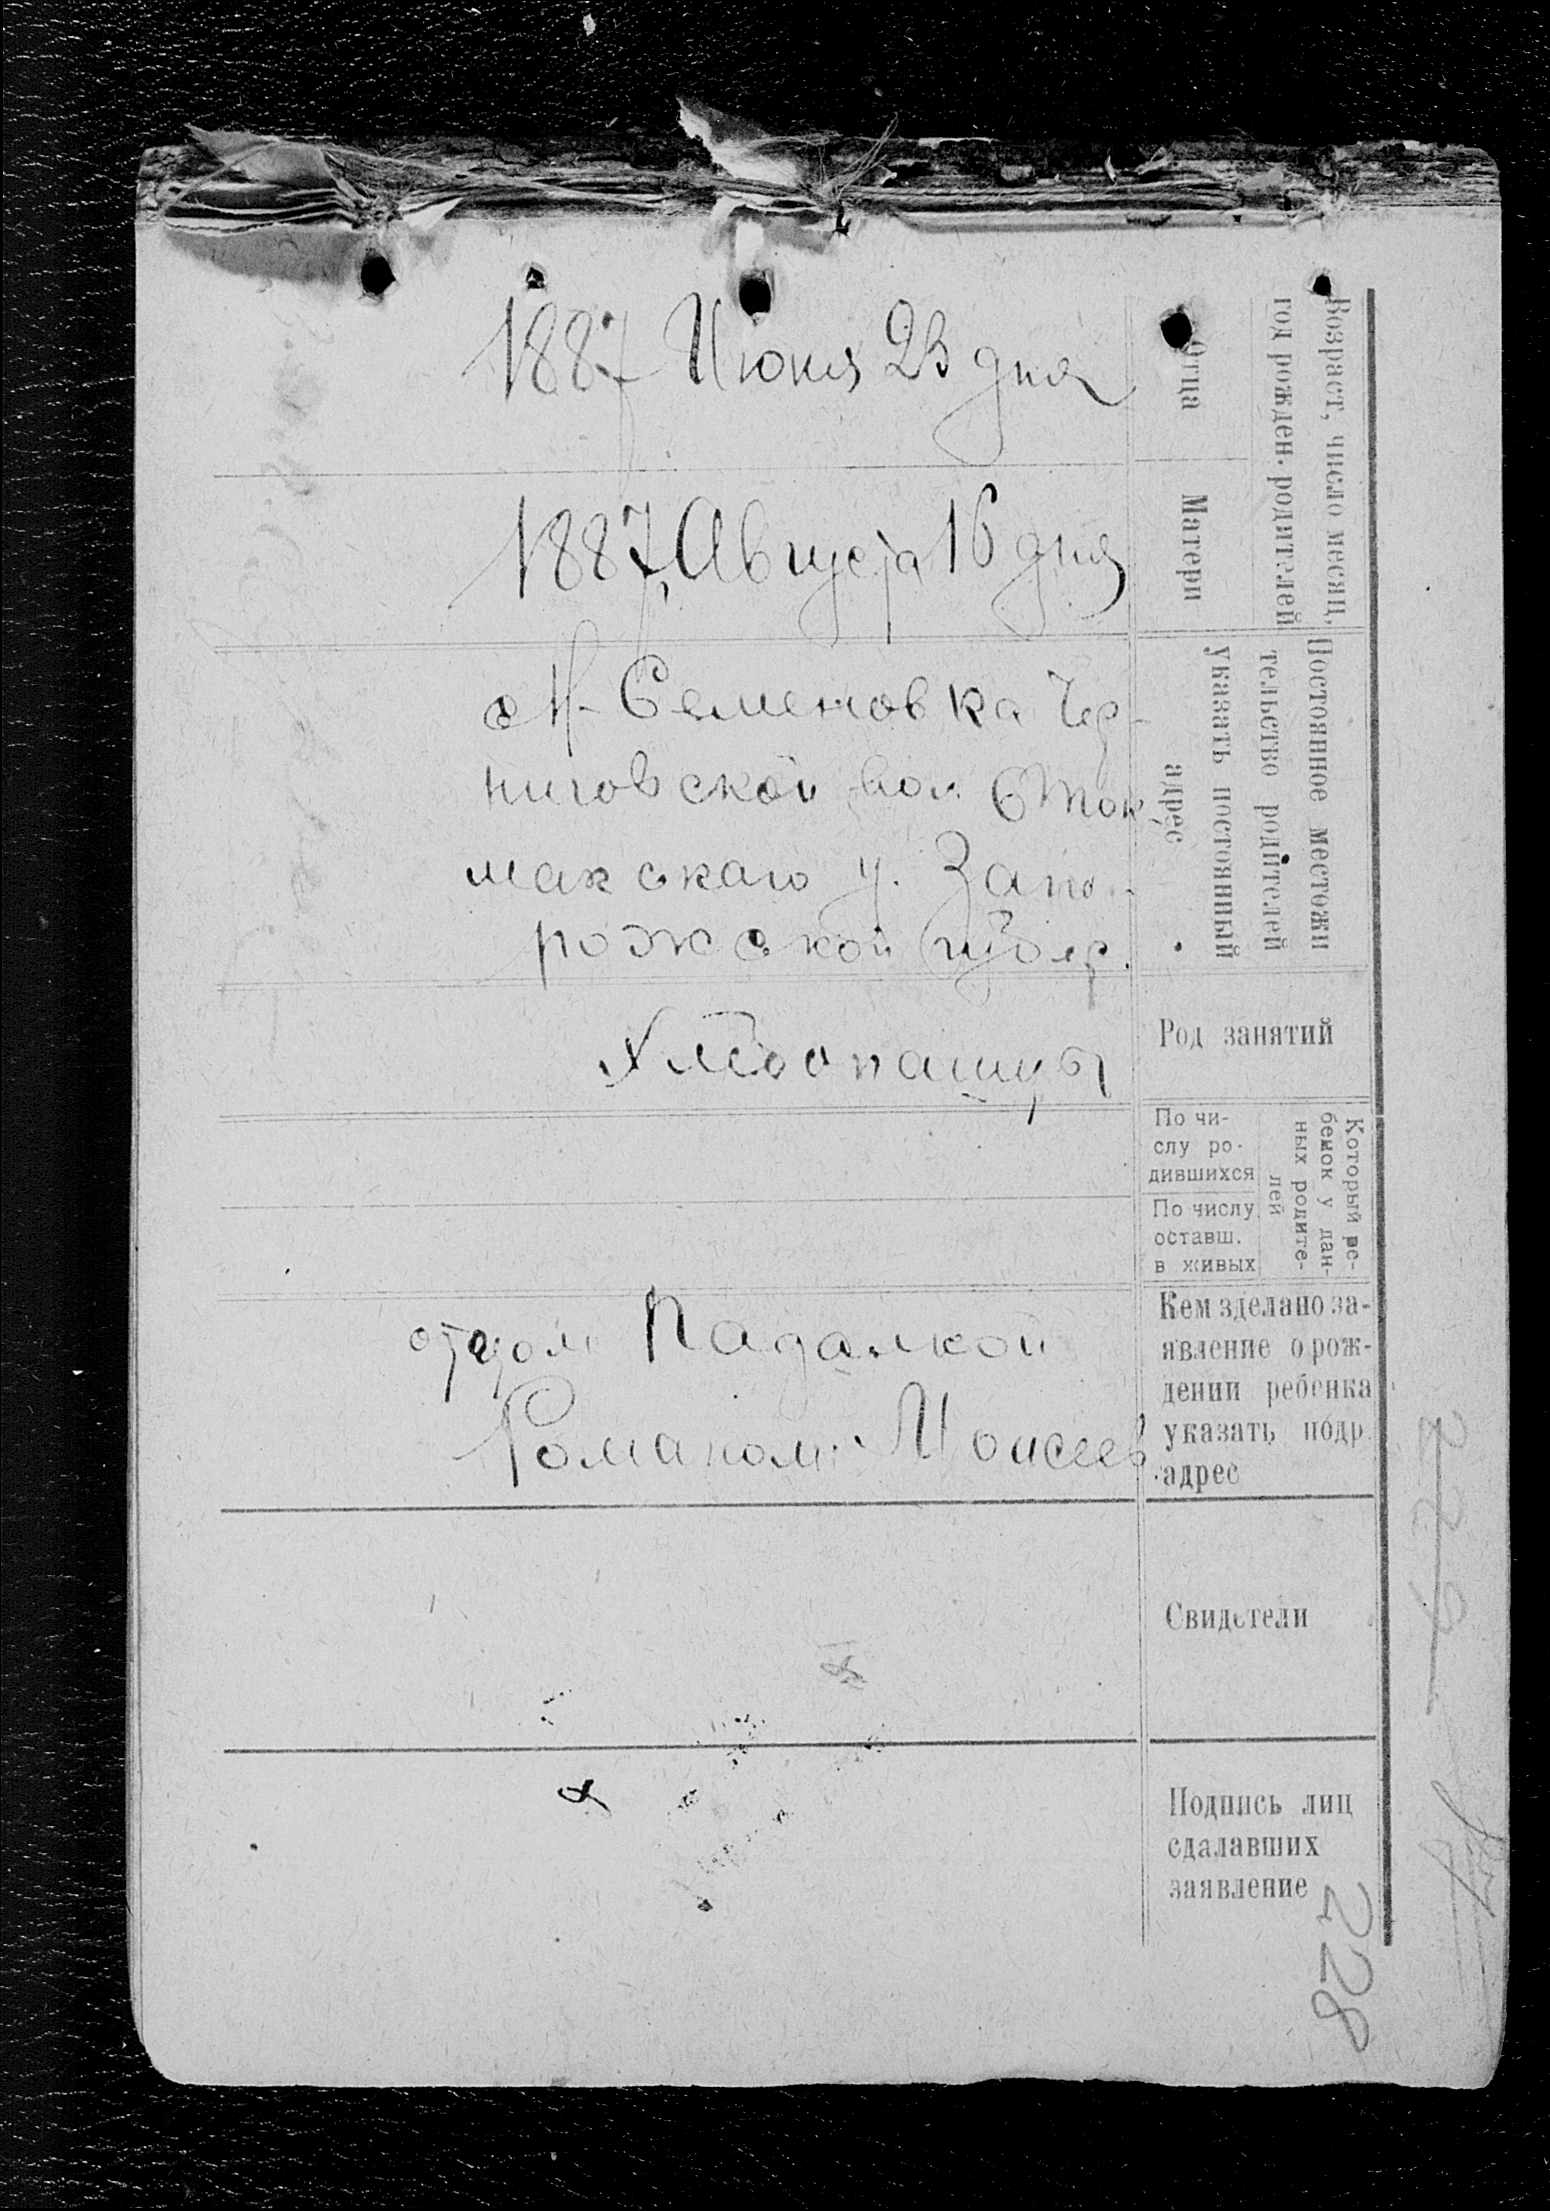 Возраст, число месяц,
год рожден. родителей
Отца
1887 Июня 23 дня
Матери
1887 Августа 16 дня
Постоянное местожи
тельство родителей
указать постоянный
адрес
Семеновка Чер-
ниговской вол Б Ток
макскаго у. Запо-
рожской губер.
Род занятий
Хлебопашцы
Который ре-
бенок у дан-
ных родите-
лей
По чи-
слу ро-
дившихся
По числу
оставш.
в живых
Кем зделано за-
явление о рож-
дении ребенка
указать подр.
адрес
отцом Падалкой
Романом Моисеев
Свидетели
Подпись лиц
сдалавших
заявление
229
228